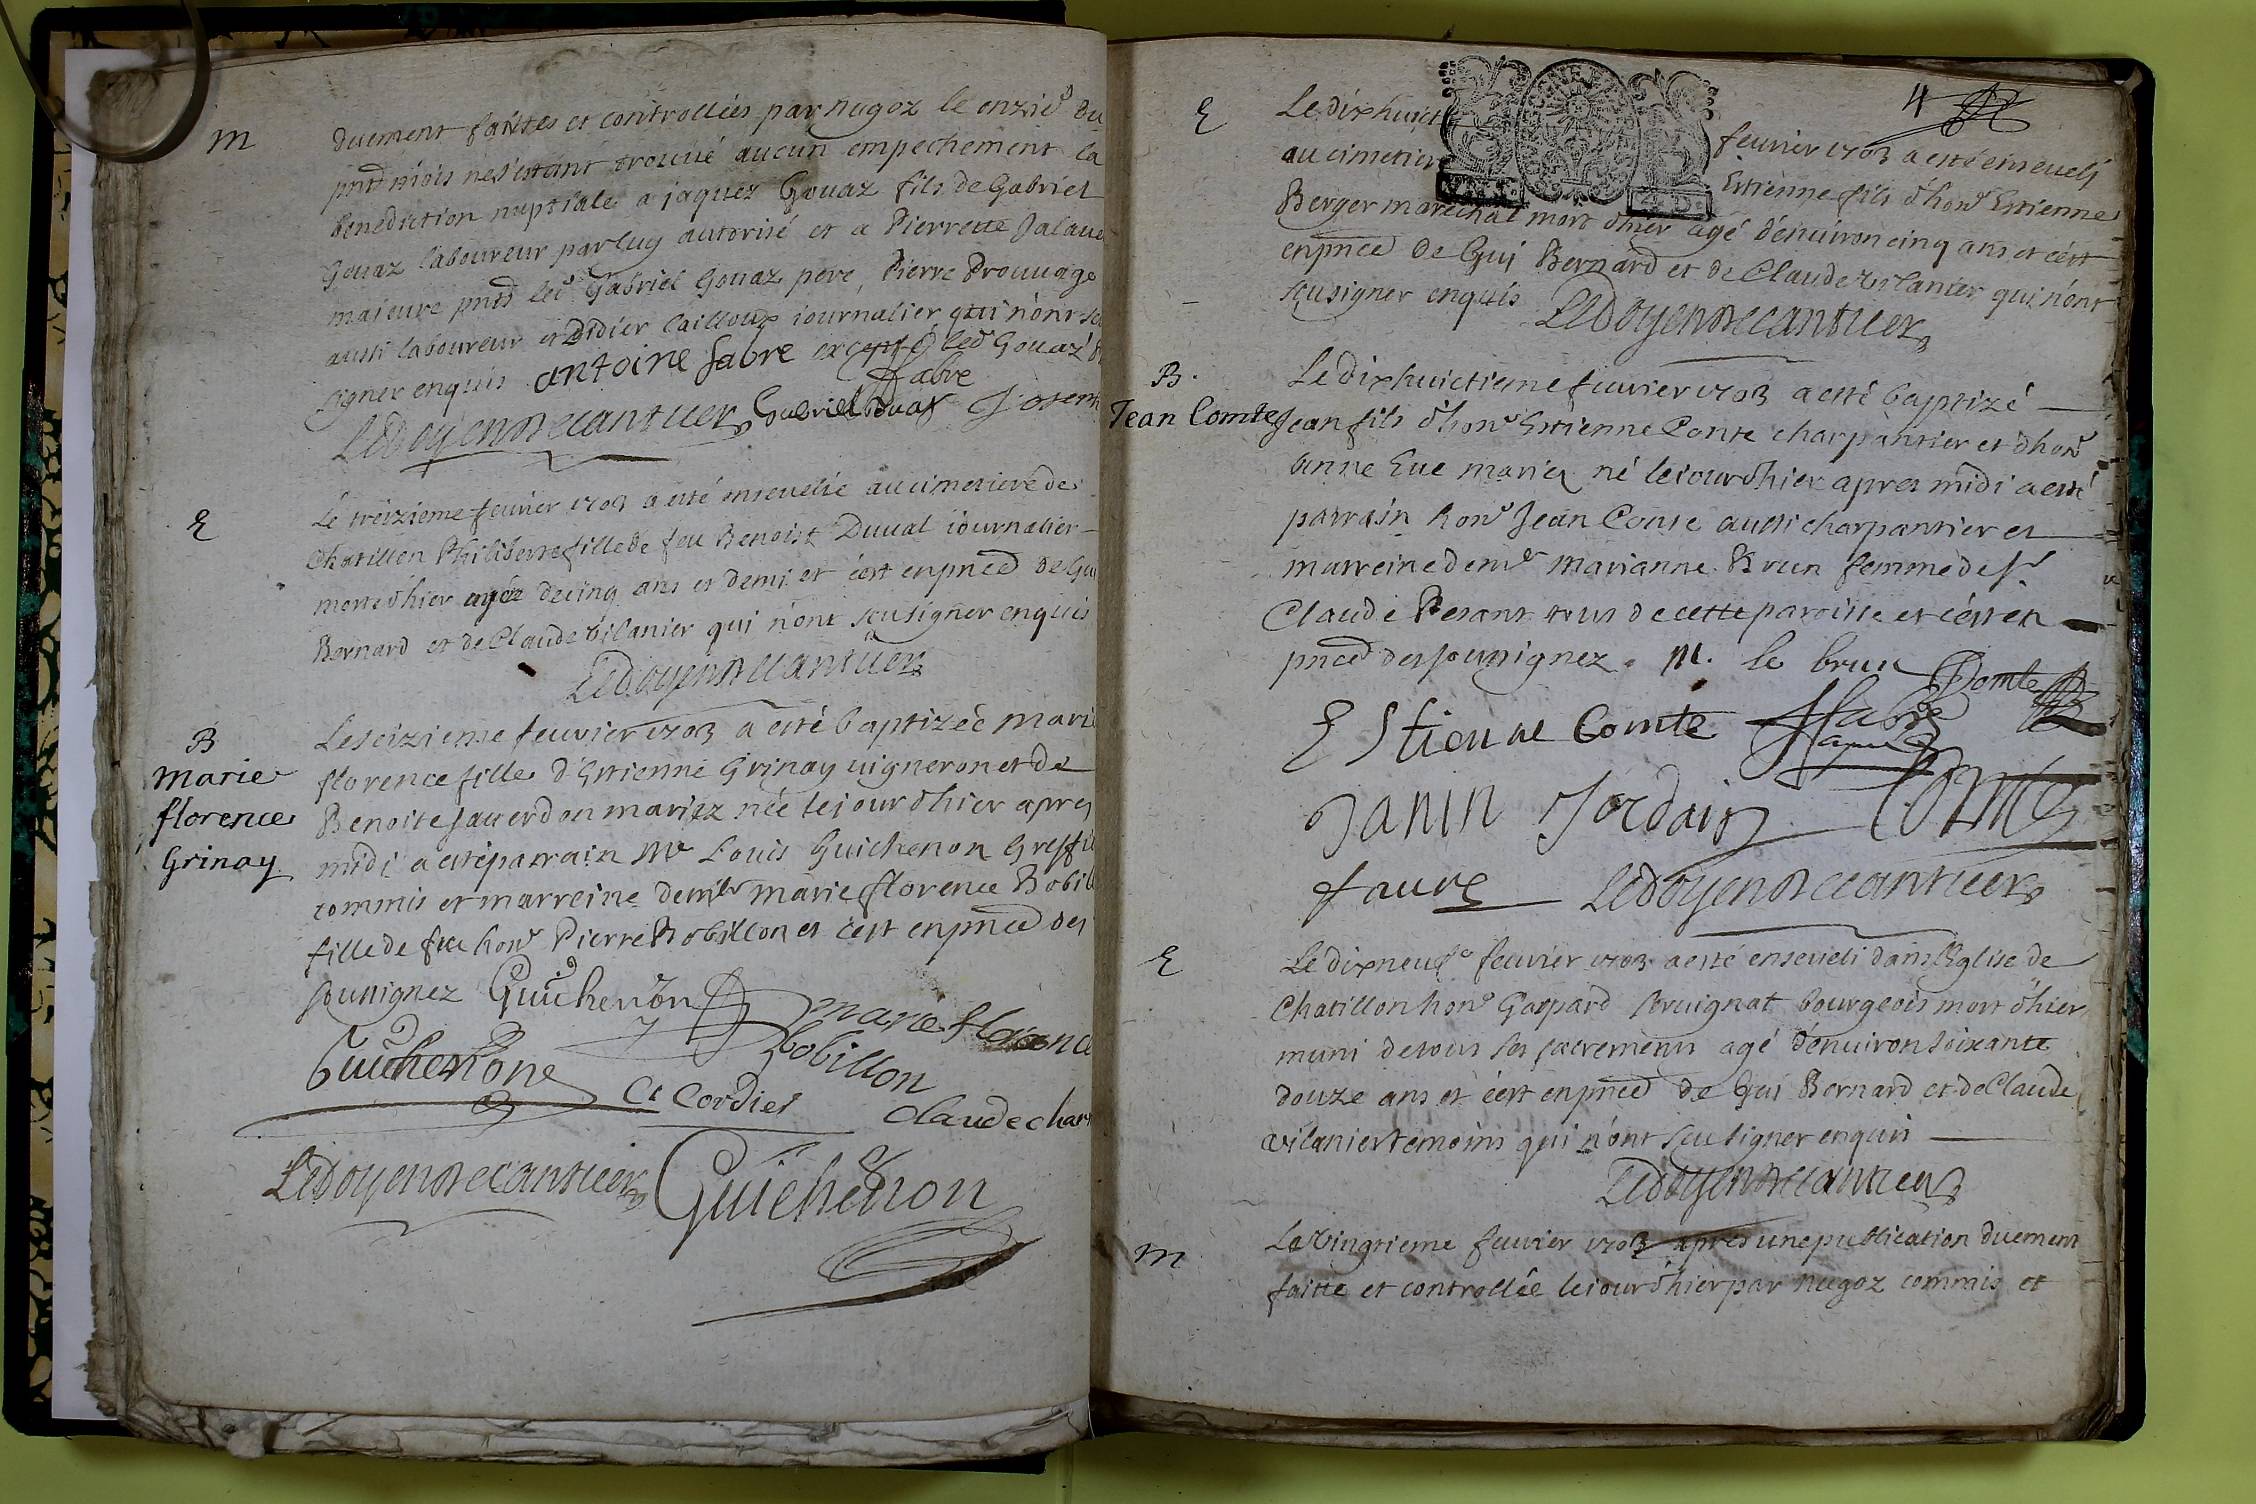 m
duement faittes et controllées par nugoz le onzie du
pnt mois ne s'estant trouué aucun empechement la
benediction nuptiale a jaquez Gouaz fils de Gabriel
Gouaz laboureur par luy autorisé et a Pierrette
maieure pnts led Gabriel Gouaz pere, Pierre Prouuage
aussi laboureur et Didier Cailloux iournalier qui n'ont
signer enquis antoine fabre excepté led Gouaz
fabre
Gabriel Gouaz
E
Le treizieme feurier 1703 a esté enseuelie au cimetiere de
Chatillon Philiberte fille de feu Benoist Duual iournalier
morte d'hier agée de cinq ans et demi et c'est en pnce de Gui
Bernard et de Claude vilanier qui n'ont sceu signer enquis
B
Marie
florence
Grinay
Le seizieme feuurier 1703 a esté baptizée Marie
florence fille d'Estienne Grinay uigneron et de
Benoite mariez née le iour d'hier apres
midi a esté parrain Me Louis Guichenon Greffi
commis et marreine demlle marie florence Robill
fille de feu hon Pierre Robillon et c'est en pnce des
sousignez Guichenon
marie florence
Robillon
Guichenone
Cl Cordier
claude char
Guichenon
4
E
Le dixhuict feurier 1703 a esté enseueli
au cimetier Estienne fils d'hon Estienne
Berger marechal mort d'hier agé d'enuiron cinq ans et c'est
en pnce de Gui Bernard et de Claude vilanier qui n'ont
sceu signer enquis
B.
Jean Comte
Le dixhuictieme feurier 1703 a esté baptizé
Jean fils d'hon Estienne Conte charpantier et d'hon
anne Eue mariez né le iour d'hier apres midi a esté
parrain hon Jean Conte aussi charpantier et
marreine demlle Marianne Brun femme de sr
Claude Pesant tous de cette paroisse et c'est en
pnce des sousignez. M. le brun Comte
EStienne Comte fabre
Janin Jordain Comte
faure
E
Le dixneufe feurier 1703 a esté enseueli dans l'Eglise de
Chatillon hon Gaspard bourgeois mort d'hier
muni de tous ses sacremens agé d'enuiron soixante
douze ans et c'est en pnce de Gui Bernard et de Claude
vilanier temoins qui n'ont sceu signer enquis
m
Le vingtieme feurier 1703 apres une publication duement
faitte et controllée le iour d'hier par nugoz commis et